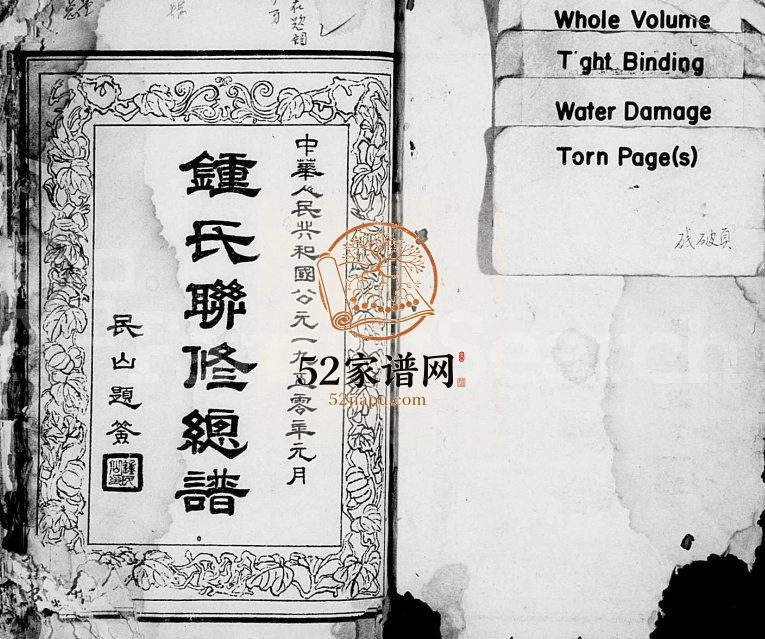 中華人民共和國公元一九五零年元月
鍾氏聯修總譜
民山題簽
Whole Volume
Tight Binding
Water Damage
Torn Page(s)
残破頁
52家谱网
52jiapu.com